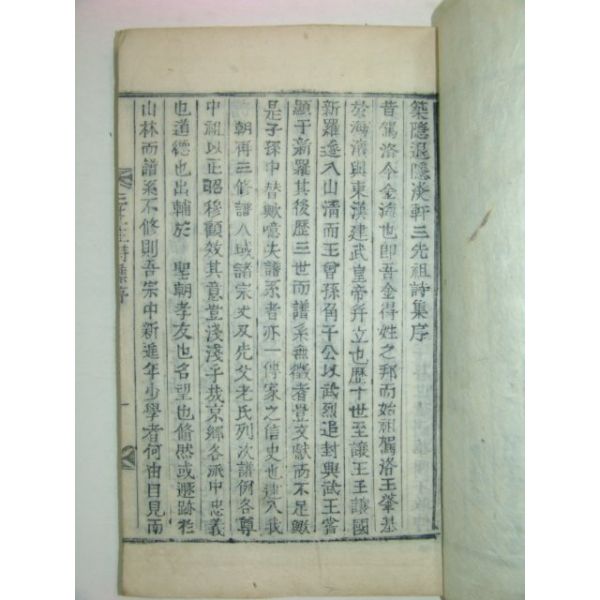 築隱退隱淡軒三先祖詩集序
昔駕洛今金海也卽吾金得姓之邦而始祖駕洛王肇基
於海濱與東漢建武皇帝幷立也歷十世至讓王王讓國
新羅遜入山淸而王曾孫角干公以武烈追封興武王當
顯于新羅其後歷三世而譜系無徵者豈文獻而不足歟
是子孫中替歟噫失譜系者亦一傳家之信史也逮入我
朝再三修譜八域諸宗丈及先父老氏列次譜例各尊
中祖以正昭穆顧效其意豈淺淺乎哉京鄕各派中忠義
也道德也出輔於 聖朝孝友也名望也翛然或遯跡於
山林而譜系不修則吾宗中新進年少學者何由目見而
三先生詩集序 一